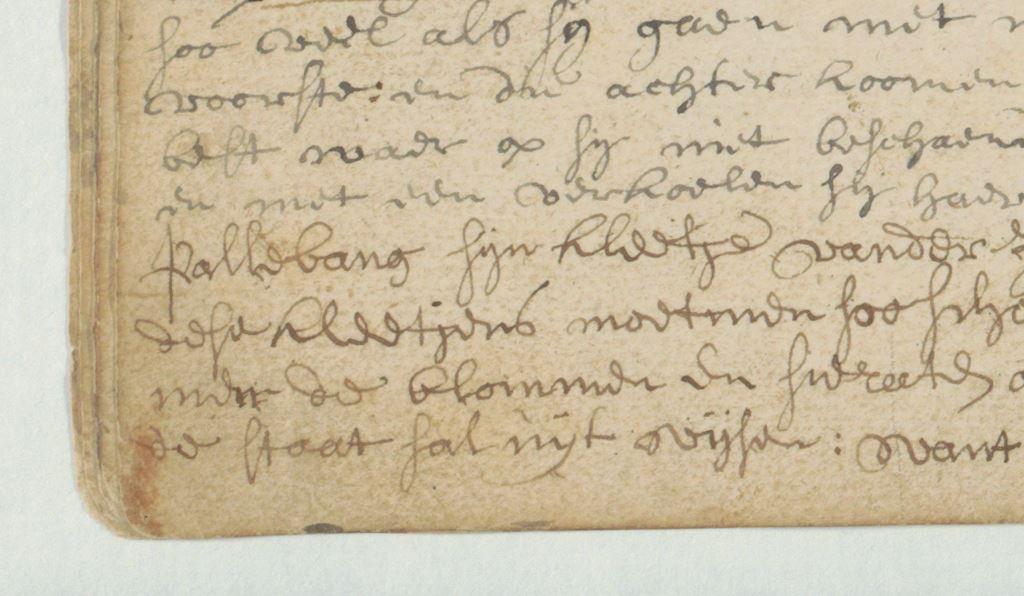 soo veel als sij gaen met
voorste: en die achter koomen
best waer op sij niet beschaem
en met een verkoelen sij haer
Pallebang sijn kleetje vander
dese kleetjens moetmen soo sch
men de blommen en sieraeten
de staat sal uijt wijsen: want